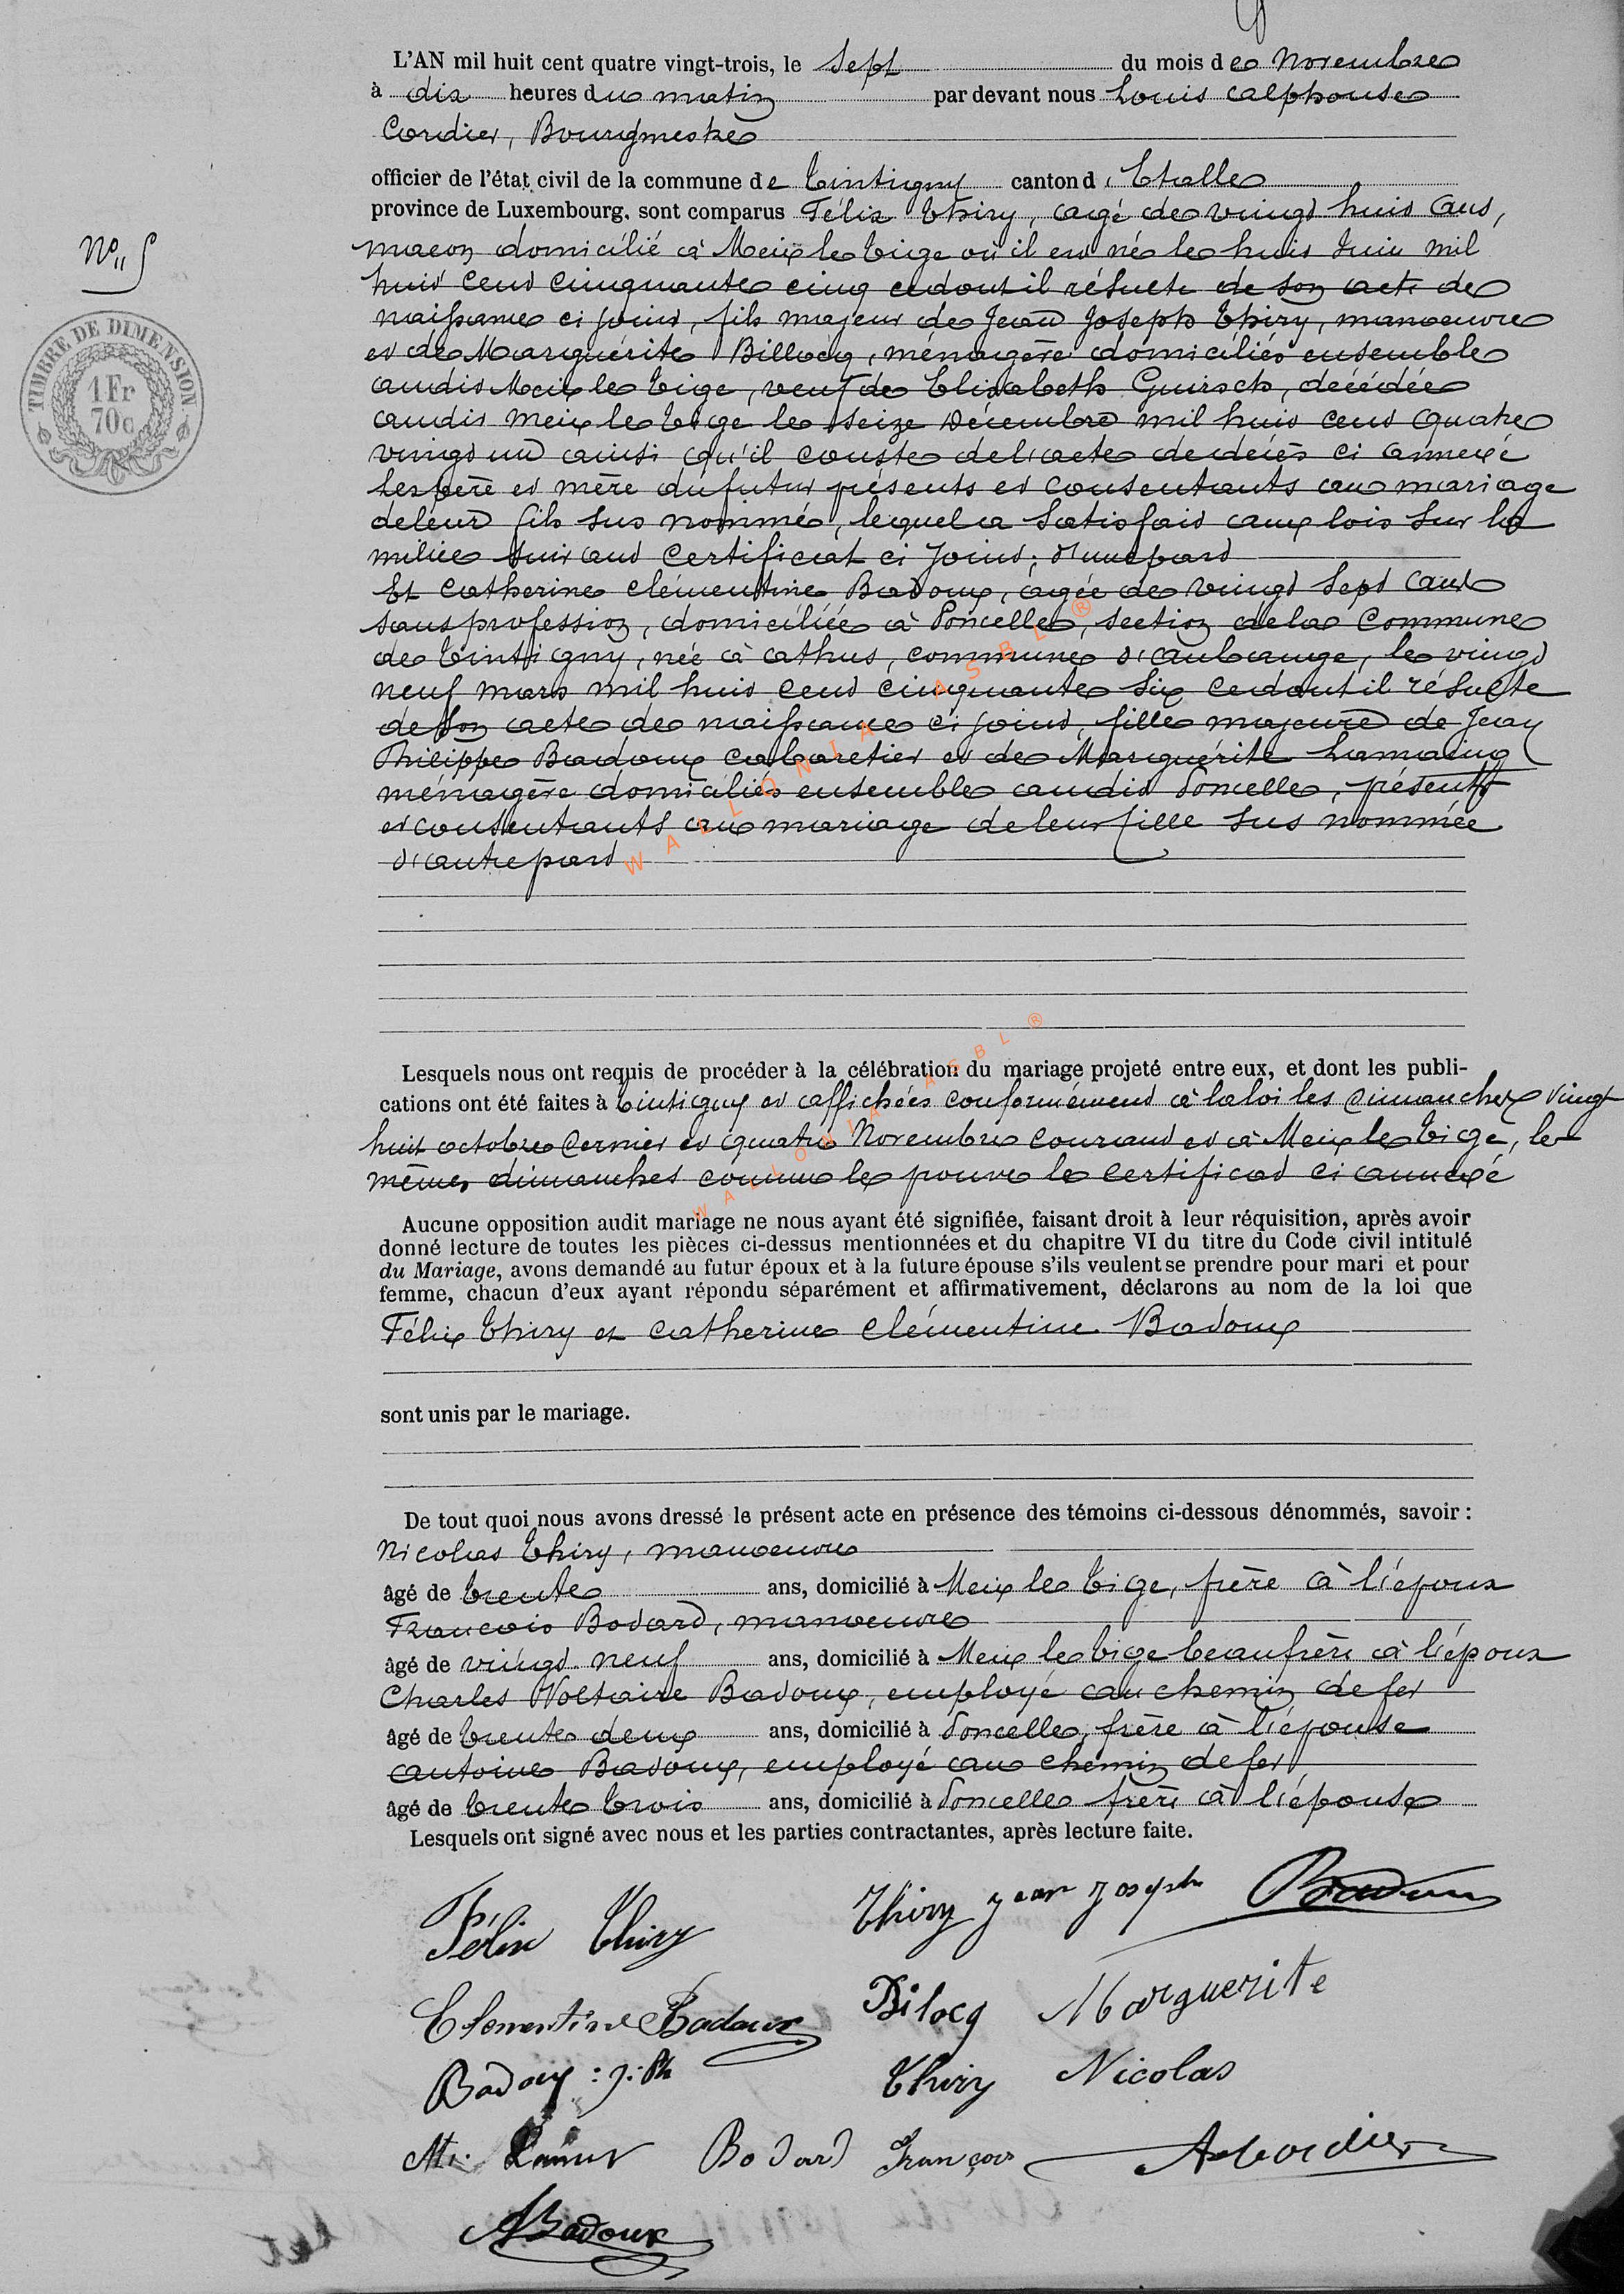 L'AN mil huit cent quatre vingt-trois, le sept du mois de Novembre
à dix heures du matin par devant nous Louis Alphonse
Cordier, Bourgmestre
officier de l'état civil de la commune de Tintigny canton d'Etalle
province de Luxembourg, sont comparus Félix Thiry, agé de vingt huit ans,
N° 5
macon domicilié à Meix le Tige où il est né le huit Juin mil
huit cent cinquante cinq cedont il résulte de son acte de
naissance ci joint, fils majeur de Jean Joseph Thiry, manoeuvre
et de Marguérite Billocq, ménagère domiciliés ensemble
audit Meix le Tige, veuf de Elisabeth Guirsch, décédée
audit Meix le Tige le seize Décembre mil huit cent quatre
vingt un ainsi qu'il conste de l'acte de décès ci annexé
Les père et mère du futur présents et consentants au mariage
de leur fils sus nommé, lequel a satisfait aux lois sur la
milice suivant certificat ci joint; d'une part
Et Catherine Clémentine Badoux, agée de vingt sept ans
sans profession, domiciliée à Poncelle, section de la Commune
de Tintigny, née à Athus, commune d'Aubange, le vingt
neuf mars mil huit cent cinquante six cedont il résulte
de son acte de naissance ci joint, fille majeure de Jean
Philippe Badoux cabaretier et de Marguérite
ménagère domiciliés ensemble audit Poncelle, présents
et consentants au mariage de leur fille sus nommée
d'autre part
WALLONIA ASBL ®
Lesquels nous ont requis de procéder à la célébration du mariage projeté entre eux, et dont les publi-
cations ont été faites à Tintigny et affichées conformément à la loi les dimanches vingt
huit octobre dernier et quatre Novembre courant et à Meix le Tige, les
mêmes dimanches comme le prouve le certificat ci annexé
WALLONIA ASBL ®
Aucune opposition audit mariage ne nous ayant été signifiée, faisant droit à leur réquisition, après avoir
donné lecture de toutes les pièces ci-dessus mentionnées et du chapitre VI du titre du Code civil intitulé
du Mariage, avons demandé au futur époux et à la future épouse s'ils veulent se prendre pour mari et pour
femme, chacun d'eux ayant répondu séparément et affirmativement, déclarons au nom de la loi que
Félix Thiry et Catherine Clémentine Badoux
sont unis par le mariage.
De tout quoi nous avons dressé le présent acte en présence des témoins ci-dessous dénommés, savoir :
Nicolas Thiry, manoeuvre
âgé de trente ans, domicilié à Meix le Tige, frère à l'époux
Francois Bodard, manoeuvre
âgé de vingt neuf ans, domicilié à Meix le Tige beaufrère à l'époux
Charles Voltaire Badoux, employé au chemin de fer
âgé de trente deux ans, domicilié à Poncelle, frère à l'épouse
Antoine Badoux, employé au chemin de fer
âgé de trente trois ans, domicilié à Poncelle frère à l'épouse
Lesquels ont signé avec nous et les parties contractantes, après lecture faite.
Félix Thiry Thiry Jean Joseph Badoux
Clementine Badoux Bilocq Marguerite
Badoux : J: Ph Thiry Nicolas
Bodard François A Cordier
ABadoux
TIMBRE DE DIMENSION
1 Fr
70c